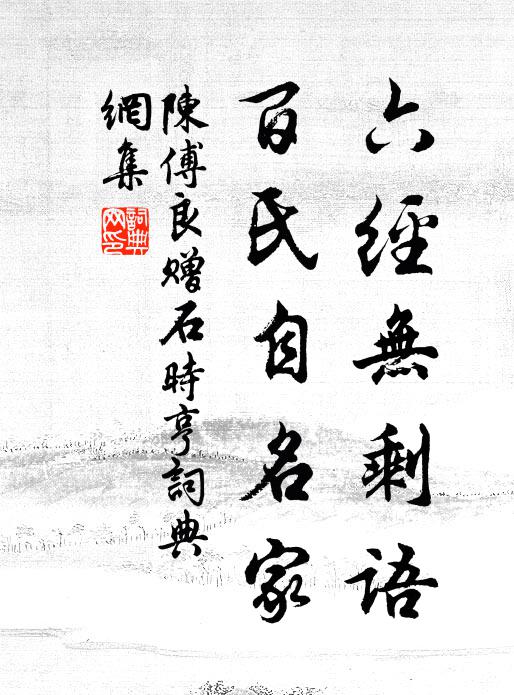 六經無剩語
百氏自名家
陳傅良贈石時亨詞典
網集
詞典
网印